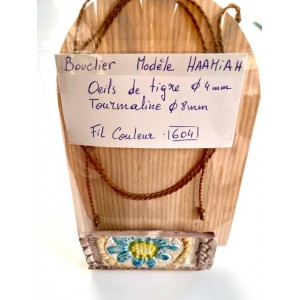 Bouclier Modèle HAAMiAH
Oeils de tigre φ 4mm
Tourmaline φ 8mm
Fil Couleur . 604